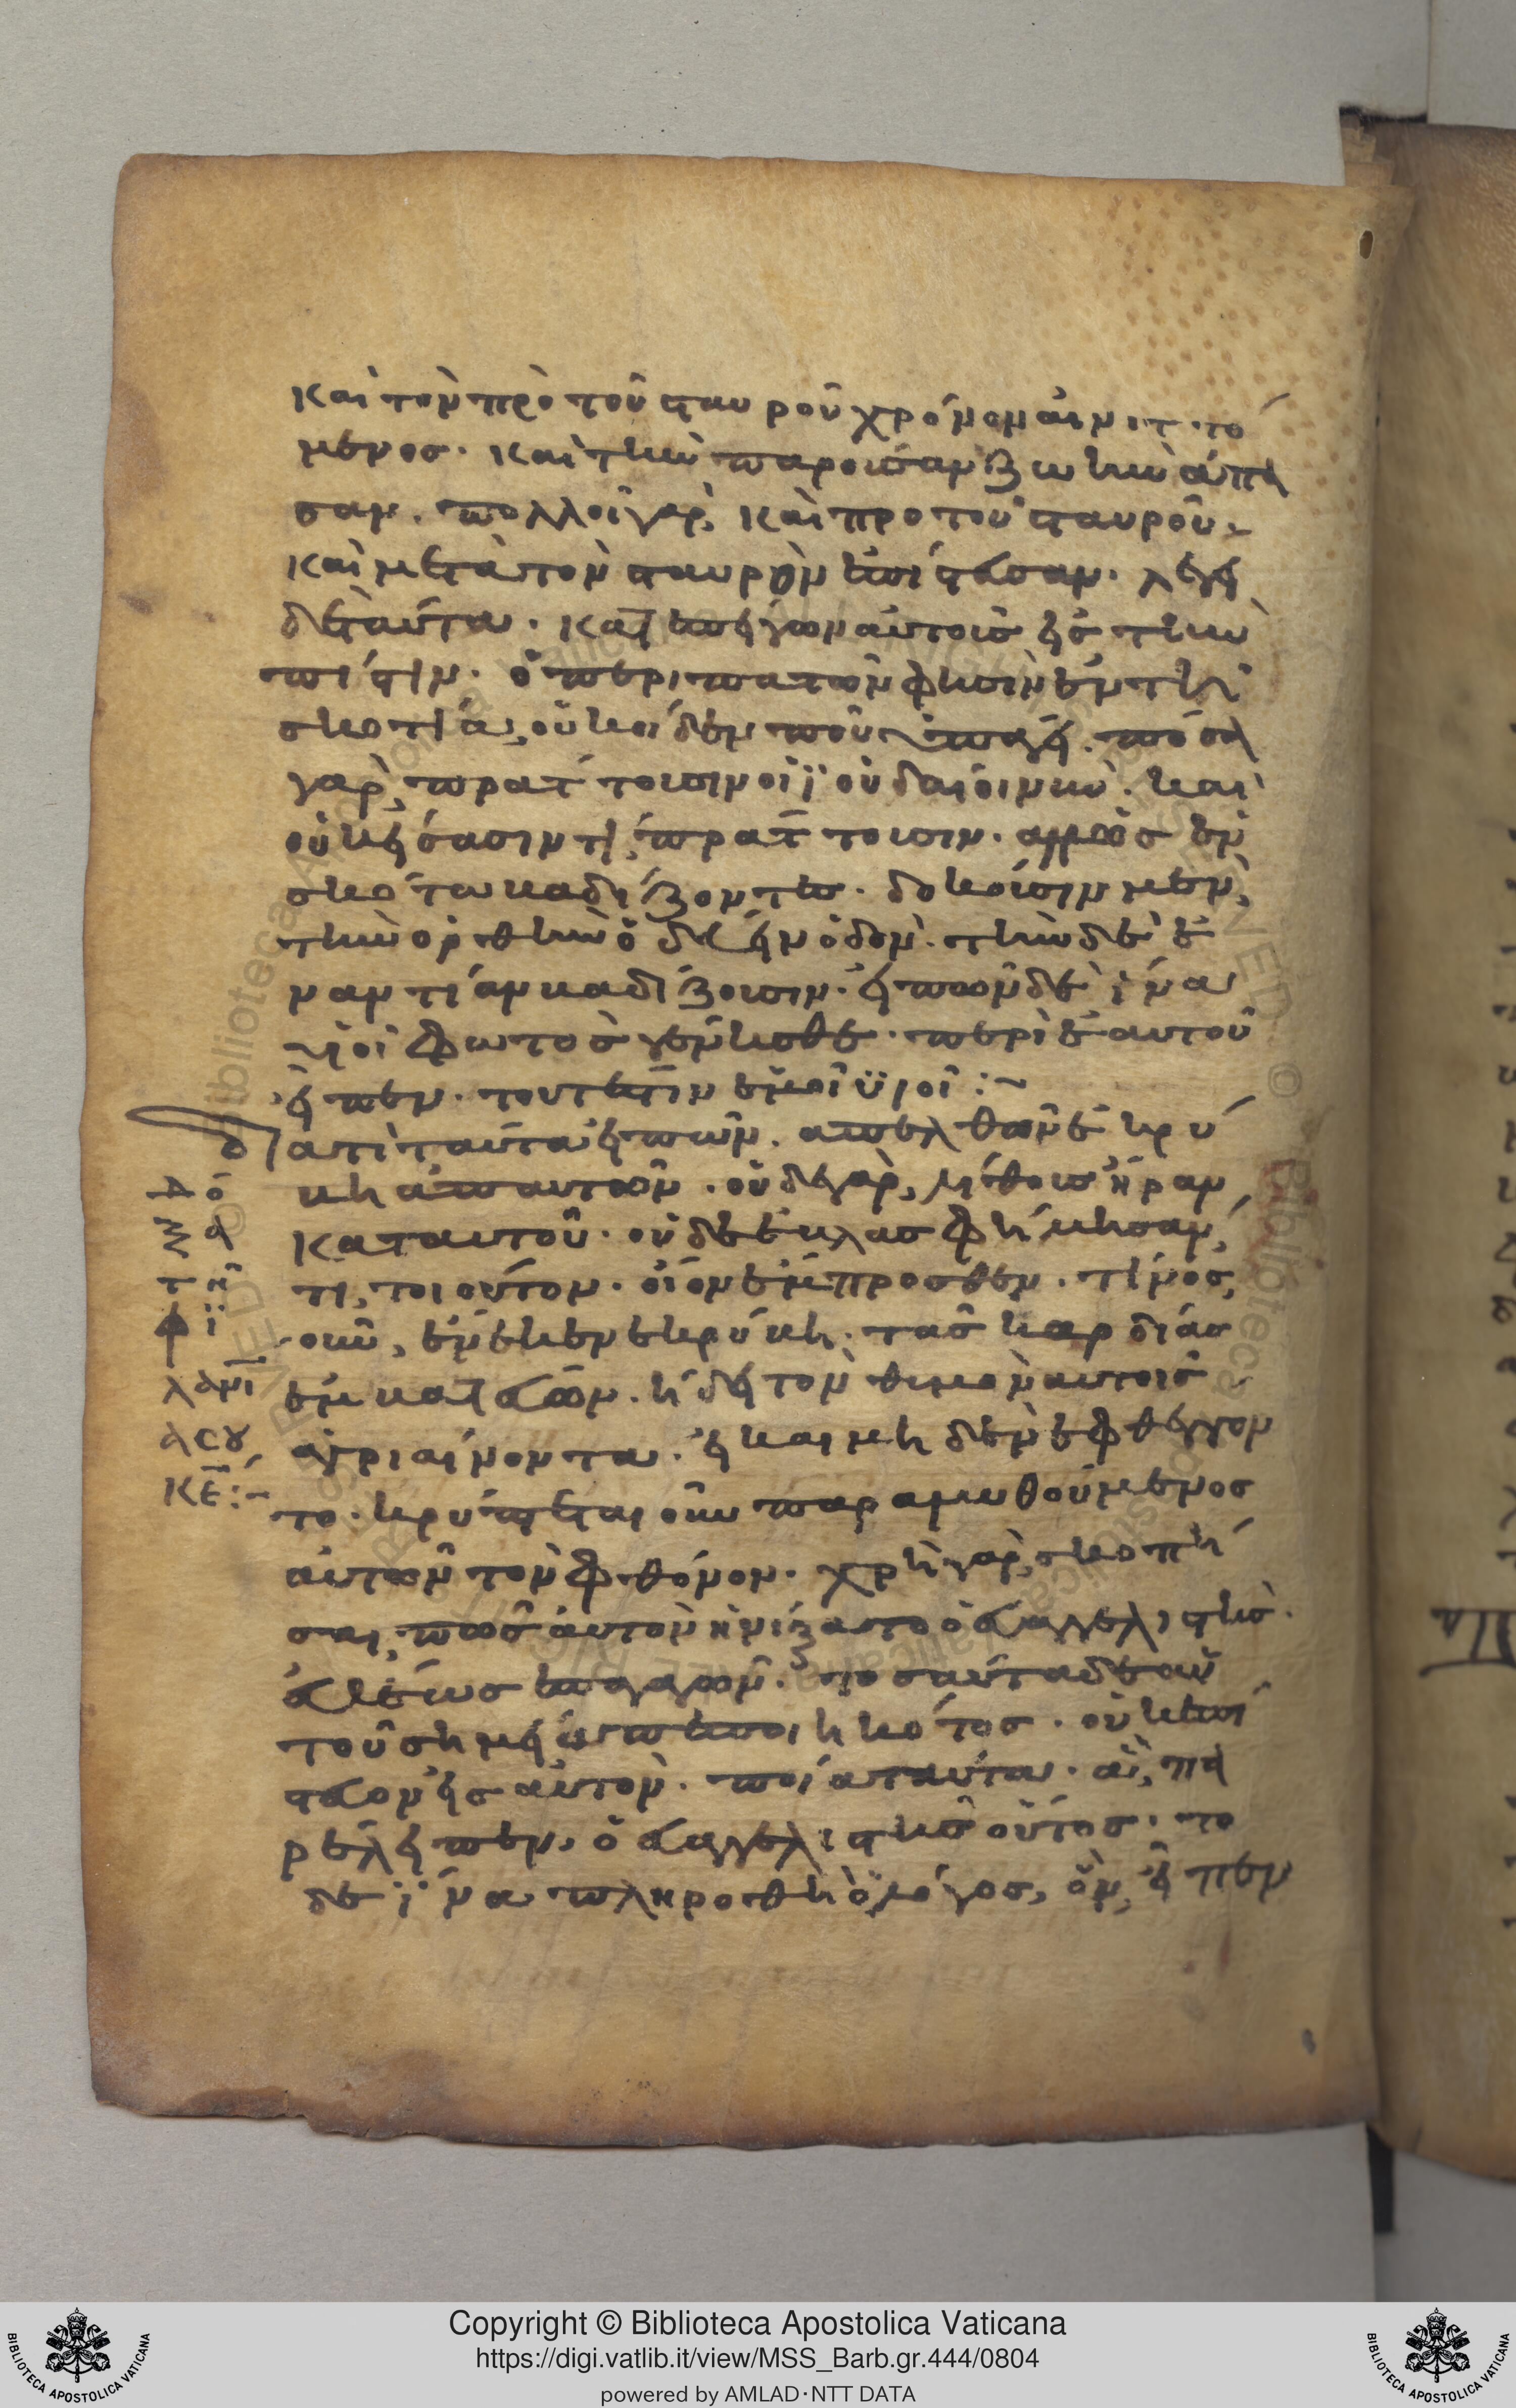 καὶ τὸν πρὸ τοῦ σταυροῦ χρόνον αἰνιττό
μενος. καὶ τὴν παροῦσαν ζωὴν ἅπα
σαν. πολλοὶ γὰρ, καὶ προ τοῦ σταυροῦ
καὶ μετὰ τὸν σταυρὸν ἐπίστευσαν. λέγει
δὲ ταῦτα. κατεπείγων αὐτοὺς εἰς τὴν
πίστιν. ὁ περιπατῶν φησὶν ἐν τῆ
σκοτία, οὐκ οἶδεν ποῦ ὑπάγει. πόσα
γὰρ, πράττουσιν οἱ ϊουδαῖοι νῦν. καὶ
οὐκ ἴσασιν τί πράττουσιν. ἀλλ' ὡς ἐν
σκότω βαδίζοντες. δοκοῦσιν μὲν,
τὴν ορθὴν ὁδεύειν ὁδόν. τὴν δὲ ἐ
ναντίαν βαδίζουσιν. εἰπὼν δὲ ἵνα
υἱοὶ φωτὸς γένησθε. περὶ ἑαυτοῦ
εἶπεν. τουτέστιν ἐμοὶ ϋιοί :~
διατί ταῦτα εἰπὼν. απελθὼν ἐκρύ
βη ἀπ αυτῶν. οὐδὲ γὰρ, λίθους ἦραν
κατ αυτοῦ. οὐδὲ ἐβλασφήμησαν,
τι, τοιοῦτον. οἷον ἔμπροσθεν. τίνος,
οὖν, ἕνεκεν εκρύβη. τὰς καρδίας
ἐμβατεύων. ἤδει τὸν θυμὸν αυτοῖς
ἀγριαίνοντα. εἰ καὶ μηδὲν ἐφθέγγον
το. κρύπτεται οὖν παραμυθούμενος
αὐτῶν τὸν φθόνον. χρὴ γὰρ, σκοπῆ
σαι, πῶς αὐτὸν ἠνίξατο ὁ εὐαγγελιστὴς.
εὐθέως ἐπαγαγὼν. τοσαῦτα δὲ αὐ
τοῦ σημεῖα πεποιηκότος. οὐκ ἐπί
στευον εἰς αὐτόν. ποῖα ταῦτα. ἃ, πα
ρέλειπεν, ὁ εὐαγγελιστὴς οὗτος. το
δὲ ϊνα πληροθῆ ὁ λόγος, ὃν, εἶπεν
δό
ξα
τῆ
φϊ
λανῖ
α σου
κε :~
Copyright © Biblioteca Apostolica Vaticana
https://digi.vatlib.it/view/MSS_Barb.gr.444/0804
powered by AMLAD·NTT DATA
BIBLIOTECA APOSTOLICA VATICANA
BIBLIOTECA APOSTOLICA VATICANA